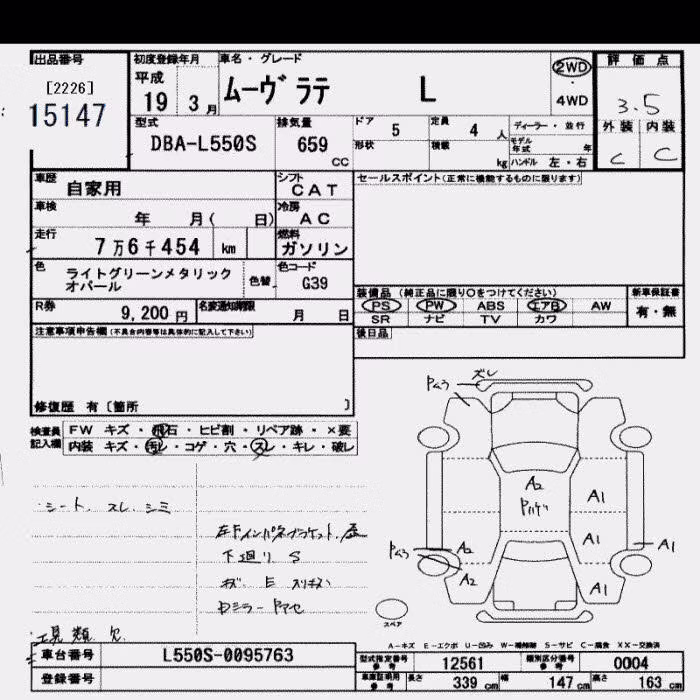 出品番号
[2226]
15147
初度登録年月
平成
19 3 月
車名・グレード
ムーヴ ラテ L
2WD
・
4WD
評価点
3.5
外装 内装
C C
型式
DBA-L550S
排気量
659 CC
ドア 5
定員 4 人
形状
積載 kg
ディーラー・並行
モデル年式 年
ハンドル 左・右
車歴 自家用
シフト CAT
セールスポイント(正常に機能するものに限ります)
車検 年 月( 日)
冷房 AC
走行 7万6千454 km
燃料 ガソリン
色 ライトグリーンメタリック
オパール
色替
色コード G39
R券 9,200 円
名変通知期限 月 日
装備品 (純正品に限り○をつけてください)
PS PW ABS エアB AW
SR ナビ TV カワ
新車保証書
有・無
後日品
注意事項申告欄(不具合内容等は具体的に記入して下さい)
修復歴 有〔箇所 〕
検査員記入欄
FW キズ・飛石・ヒビ割・リペア跡・×要
内装 キズ・汚レ・コゲ・穴・スレ・キレ・破レ
・シート、スレ、シミ
下廻り S
工具類 欠
ズレ
A2
A1
A1
A1
A1
A2
A2
スペア
A-キズ E-エクボ U-凹み W-補修跡 S-サビ C-腐食 XX-交換済
車台番号 L550S-0095763
登録番号
型式指定番号 参考 12561
類別区分番号 参考 0004
車庫証明用 参考 長さ 339 cm 幅 147 cm 高さ 163 cm